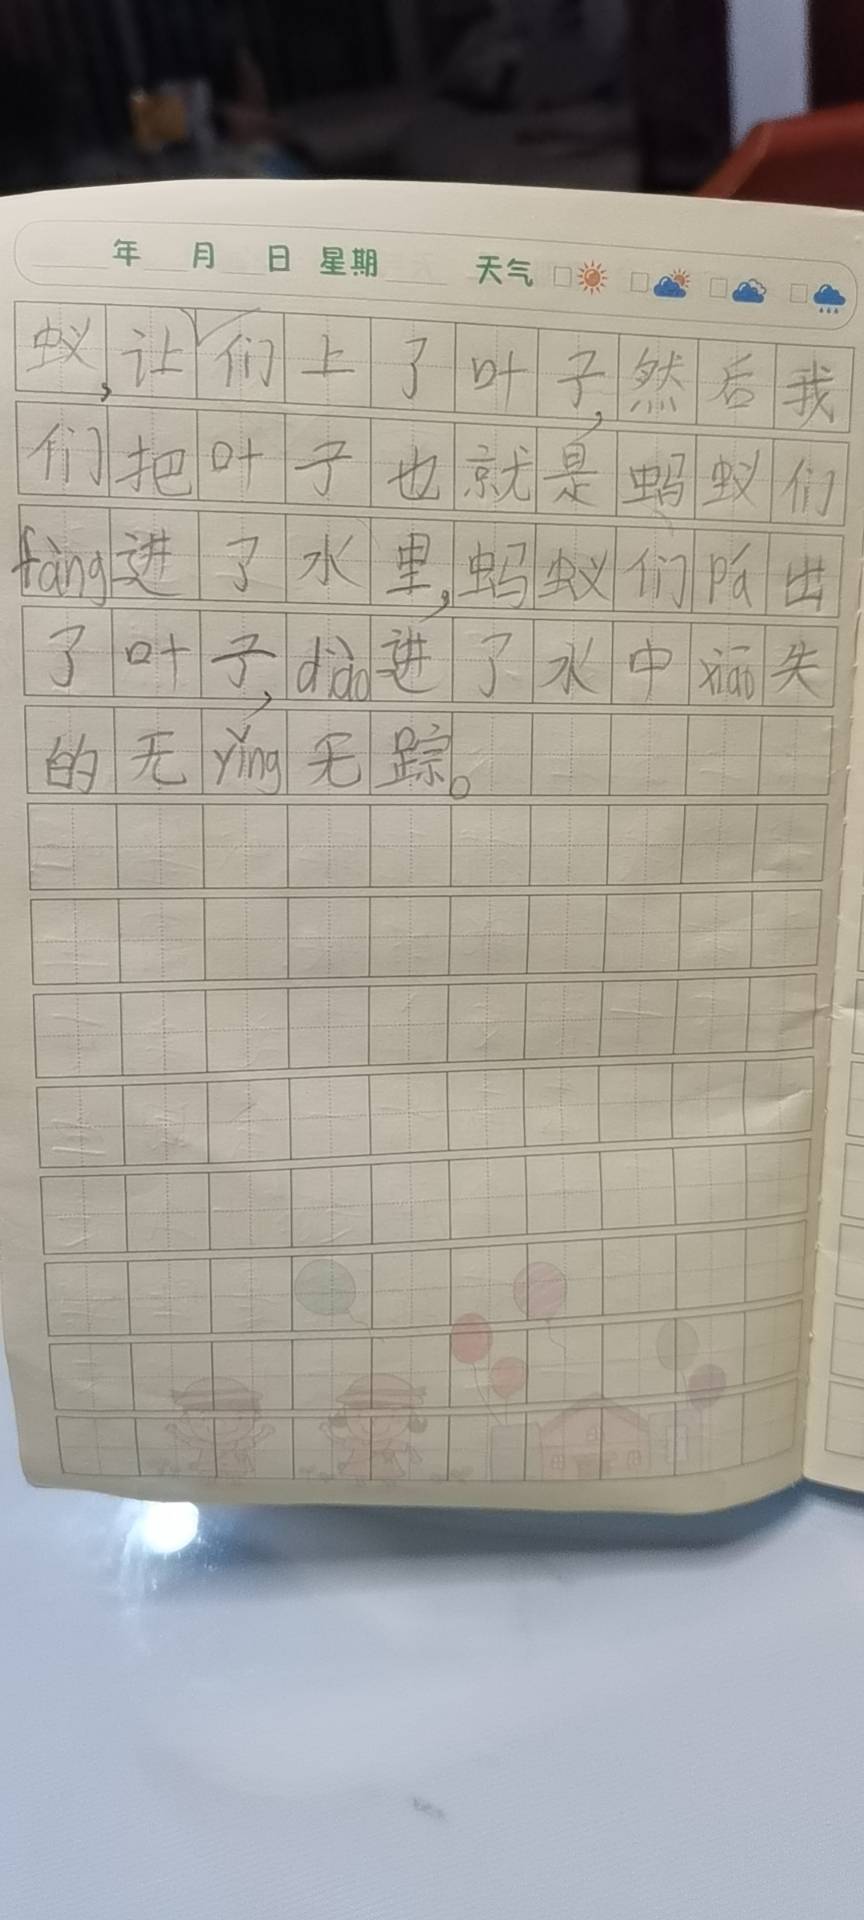 年 月 日 星期 天气
蚁,让们上了叶子,然后我
们把叶子也就是蚂蚁们
fàng进了水里,蚂蚁们pá出
了叶子,diào进了水中xiāo失
的无yǐng无踪。